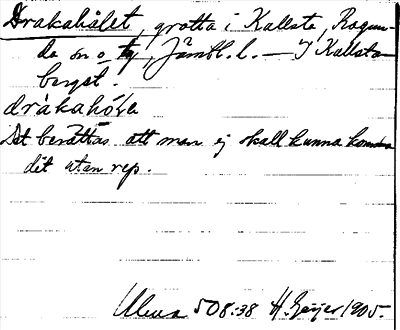 Drakahålet, grotta i Kallsta, Ragun-
da sn o. tg, Jämtl. l. — I Kallsta
berget.
drakahó̱ḷa
Det berättas att man ej skall kunna komma
dit utan rep.
Ulma 508:38 H. Geijer 1905.